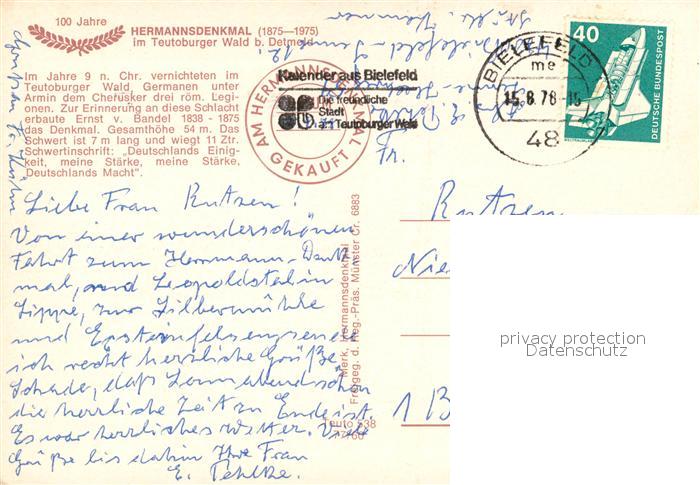 100 Jahre
HERMANNSDENKMAL (1875—1975)
im Teutoburger Wald b. Detmold
Im Jahre 9 n. Chr. vernichteten im
Teutoburger Wald, Germanen unter
Armin dem Cherusker drei röm. Legi-
onen. Zur Erinnerung an diese Schlacht
erbaute Ernst v. Bandel 1838 - 1875
das Denkmal. Gesamthöhe 54 m. Das
Schwert ist 7 m lang und wiegt 11 Ztr.
Schwertinschrift: „Deutschlands Einig-
keit, meine Stärke, meine Stärke,
Deutschlands Macht".
AM HERMANNSDENKMAL
GEKAUFT
Kalender aus Bielefeld
Die freundliche
Stadt
am Teutoburger Wald
BIELEFELD
me
15.8.78.-15
48
40
DEUTSCHE BUNDESPOST
Fr.
Liebe Frau Rutzen!
Von einer wunderschönen
Fahrt zum Hermanns-Denk-
mal, und Leopoldstal in
Lippe, zur Silbermühle
und
ich recht herzliche Grüße.
Schade, daß Sonnabend schon
die herrliche Zeit zu Ende ist.
Es war herrliches Wetter. Viele
Grüße bis dahin Ihre Frau
E. Tehlke.
Merk, Hermannsdenkmal
Freigeg. d. Reg.-Präs. Münster Cr. 6883
Teuto 538
77/60
Rutzen
Nie
1 B
privacy protection
Datenschutz